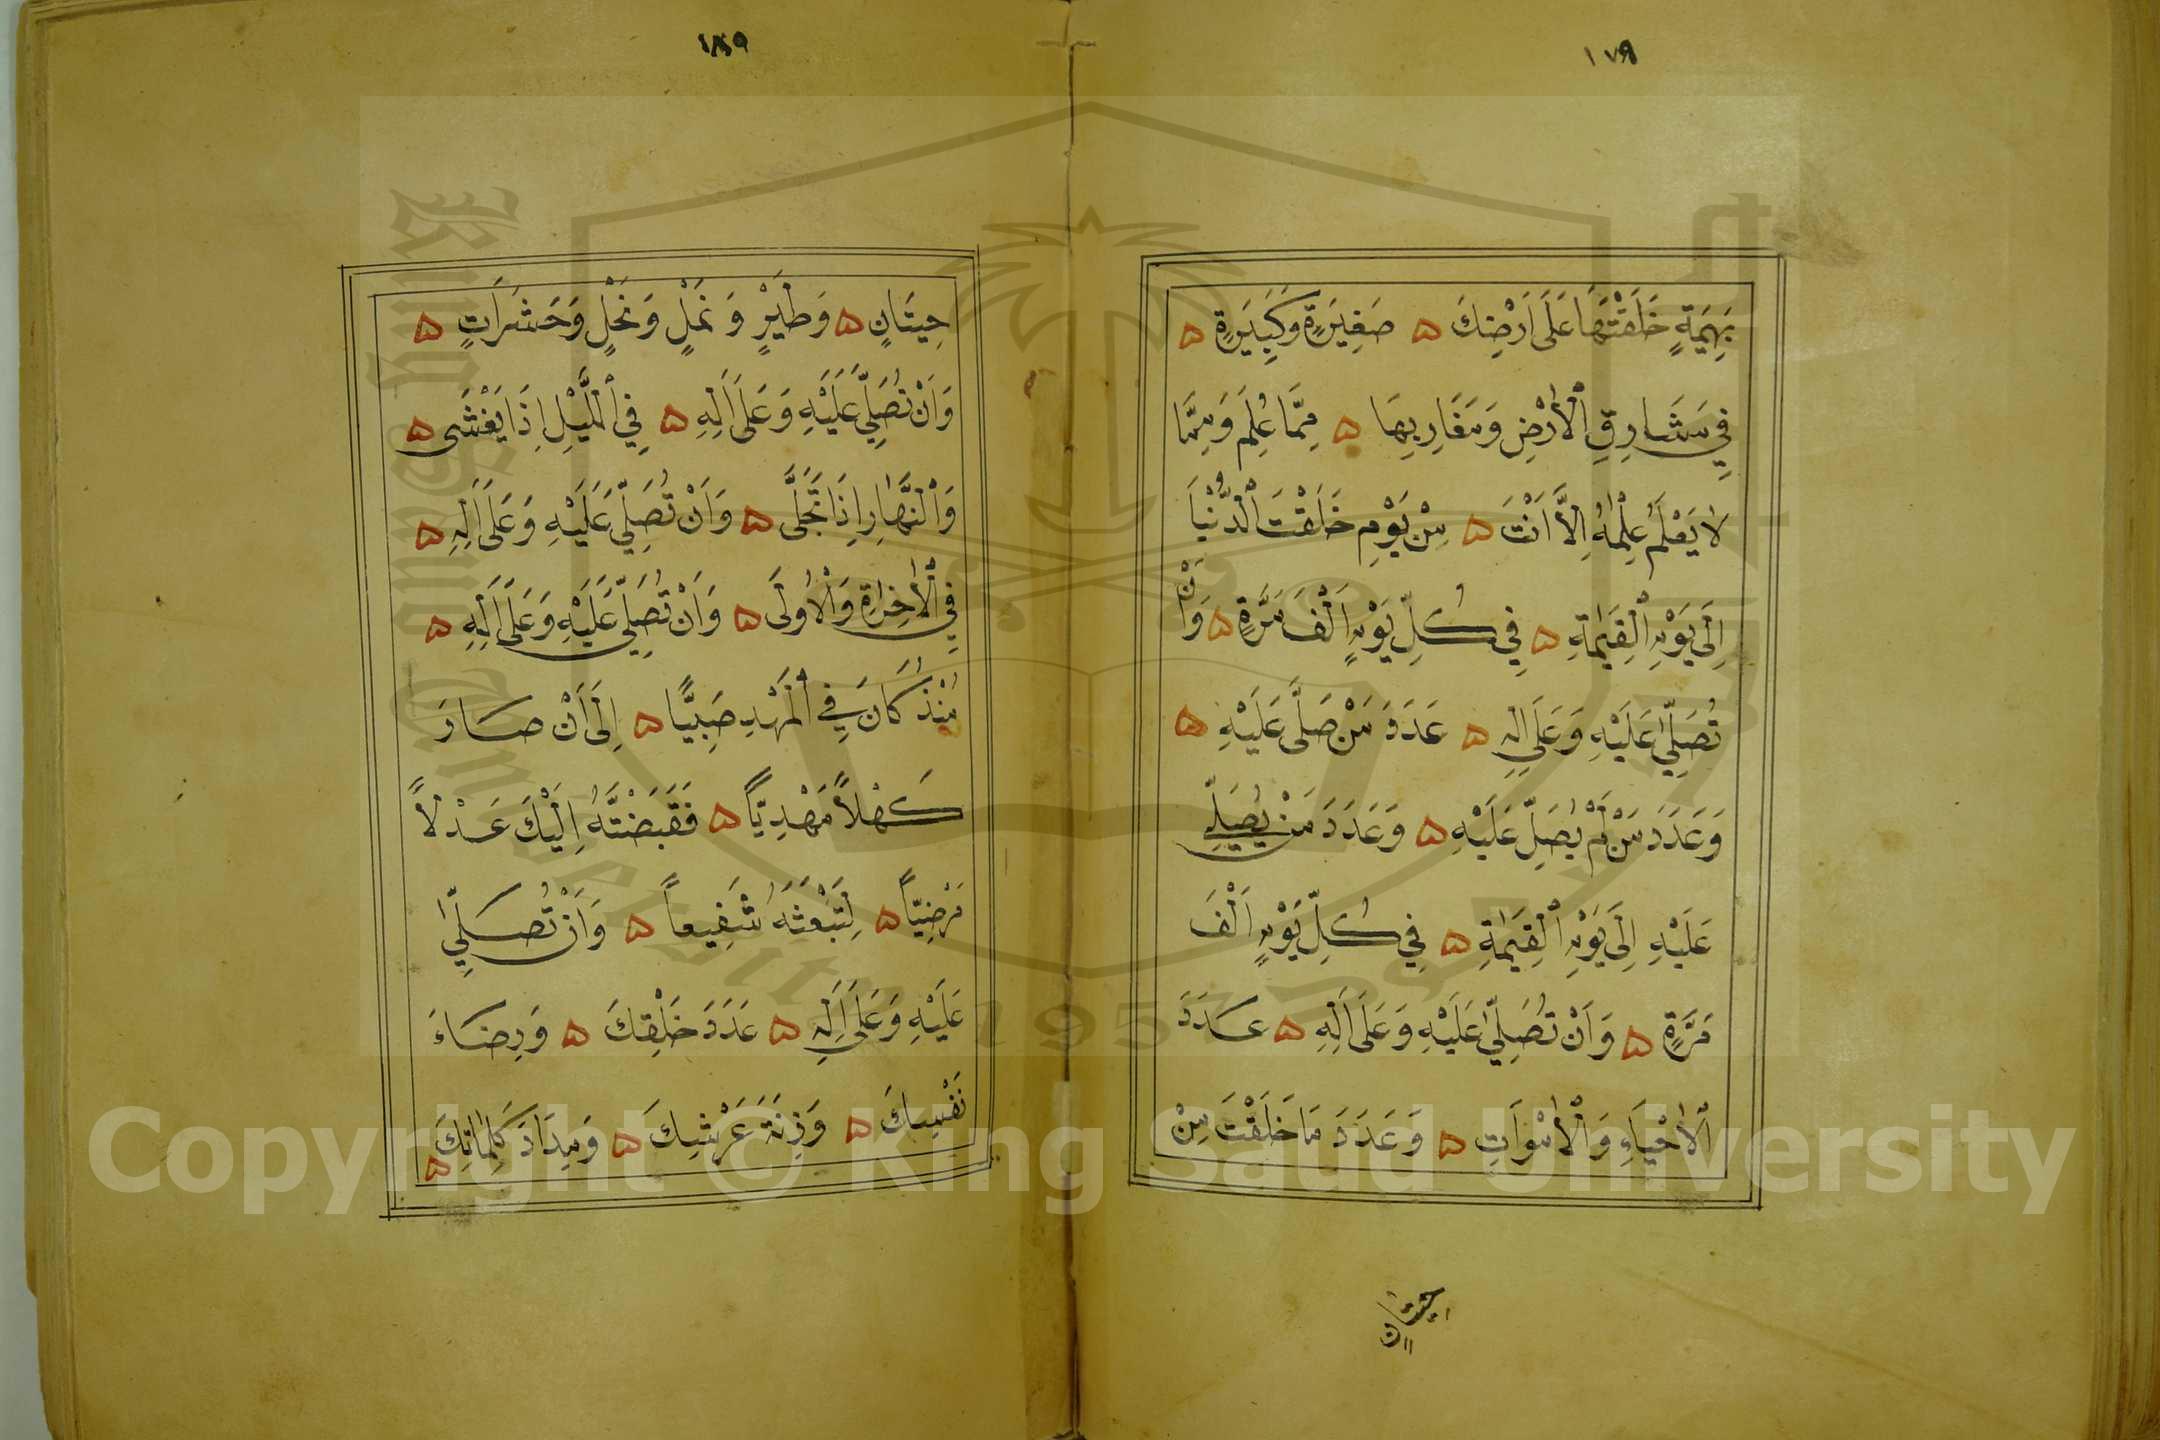 ١٧٩
بَهِيمَةٍ خَلَقْتَهَا عَلَى اَرْضِكَ ۵ صَغِيرَةٍ وَكَبِيرَةٍ ۵
فِي مَشَارِقِ الْاَرْضِ وَمَغَارِبِهَا ۵ مِمَّا عُلِمَ وَمِمَّا
لَا يَعْلَمُ عِلْمَهُ اِلَّا اَنْتَ ۵ مِنْ يَوْمِ خَلَقْتَ الدُّنْيَا
اِلَى يَوْمِ الْقِيٰمَةِ ۵ فِي كُلِّ يَوْمٍ اَلْفَ مَرَّةٍ ۵ وَاَنْ
تُصَلِّيَ عَلَيْهِ وَعَلَى اٰلِهِ ۵ عَدَدَ مَنْ صَلَّى عَلَيْهِ ۵
وَعَدَدَ مَنْ لَمْ يُصَلِّ عَلَيْهِ ۵ وَعَدَدَ مَنْ يُصَلِّي
عَلَيْهِ اِلَى يَوْمِ الْقِيٰمَةِ ۵ فِي كُلِّ يَوْمٍ اَلْفَ
مَرَّةٍ ۵ وَاَنْ تُصَلِّيَ عَلَيْهِ وَعَلَى اٰلِهِ ۵ عَدَدَ
الْاَحْيَاءِ وَالْاَمْوَاتِ ۵ وَعَدَدَ مَا خَلَقْتَ مِنْ
حِيتَانٍ
١٨٩
حِيتَانٍ ۵ وَطَيْرٍ وَنَمْلٍ وَنَحْلٍ وَحَشَرَاتٍ ۵
وَاَنْ تُصَلِّيَ عَلَيْهِ وَعَلَى اٰلِهِ ۵ فِي الَّيْلِ اِذَا يَغْشَى ۵
وَالنَّهَارِ اِذَا تَجَلَّى ۵ وَاَنْ تُصَلِّيَ عَلَيْهِ وَعَلَى اٰلِهِ ۵
فِي الْاٰخِرَةِ وَالْاُولَى ۵ وَاَنْ تُصَلِّيَ عَلَيْهِ وَعَلَى اٰلِهِ ۵
مُنْذُ كَانَ فِي الْمَهْدِ صَبِيًّا ۵ اِلَى اَنْ صَارَ
كَهْلًا مَهْدِيًّا ۵ فَقَبَضْتَهُ اِلَيْكَ عَدْلًا
مَرْضِيًّا ۵ لِتَبْعَثَهُ شَفِيعاً ۵ وَاَنْ تُصَلِّيَ
عَلَيْهِ وَعَلَى اٰلِهِ ۵ عَدَدَ خَلْقِكَ ۵ وَرِضَاءَ
نَفْسِكَ ۵ وَزِنَةَ عَرْشِكَ ۵ وَمِدَادَ كَلِمَاتِكَ ۵
Copyright © King Saud University
King Saud University
1957